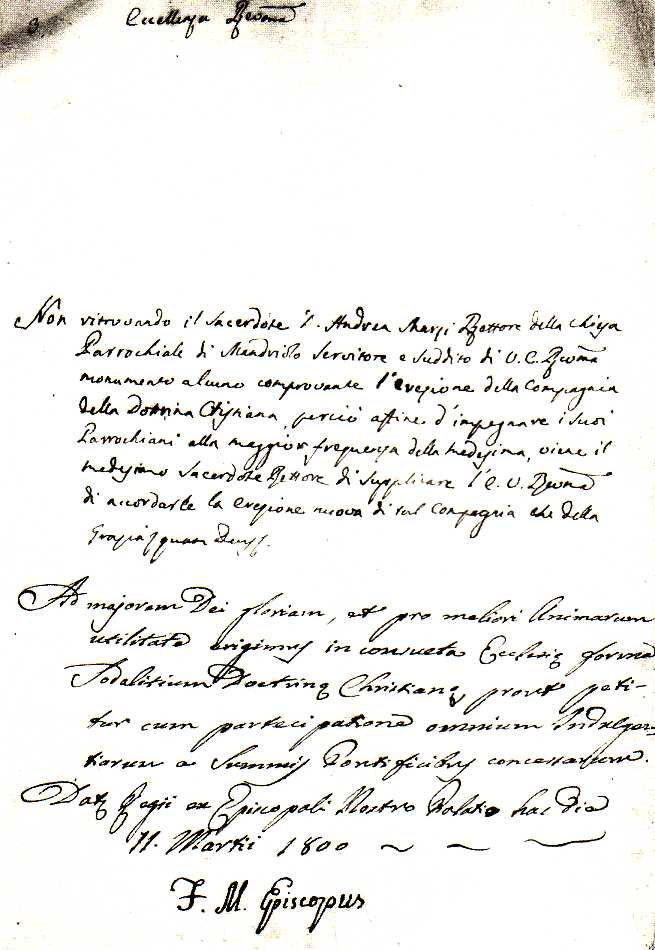 3.
Eccellenza Rev̄ma
Non ritrovando il Sacerdote D. Andrea Rettore della Chiesa
Parrochiale di Mandriolo Servitore e suddito di V. E. Rev̄ma
monumento alcuno comprovante l'erezione della Compagnia
della Dottrina Cristiana, perciò affine d'impegnare i suoi
Parrochiani alla maggior frequenza della medesima, viene il
medesimo Sacerdote Rettore di supplicare l'E. V. Rev̄ma
di accordarle la erezione nuova di tal Compagnia che della
Grazia quam Deus.
Ad majorem Dei gloriam, et pro meliori Animarum
utilitate erigimus in consueta Ecclesię forma
Sodalitium Doctrinę Christianę, prout peti-
tur cum partecipatione omnium Indulgen-
tiarum a Summis Pontificibus concessarum.
Datę Regii ex Episcopali Nostro Palatio hac die
11. Martii 1800
F. M. Episcopus